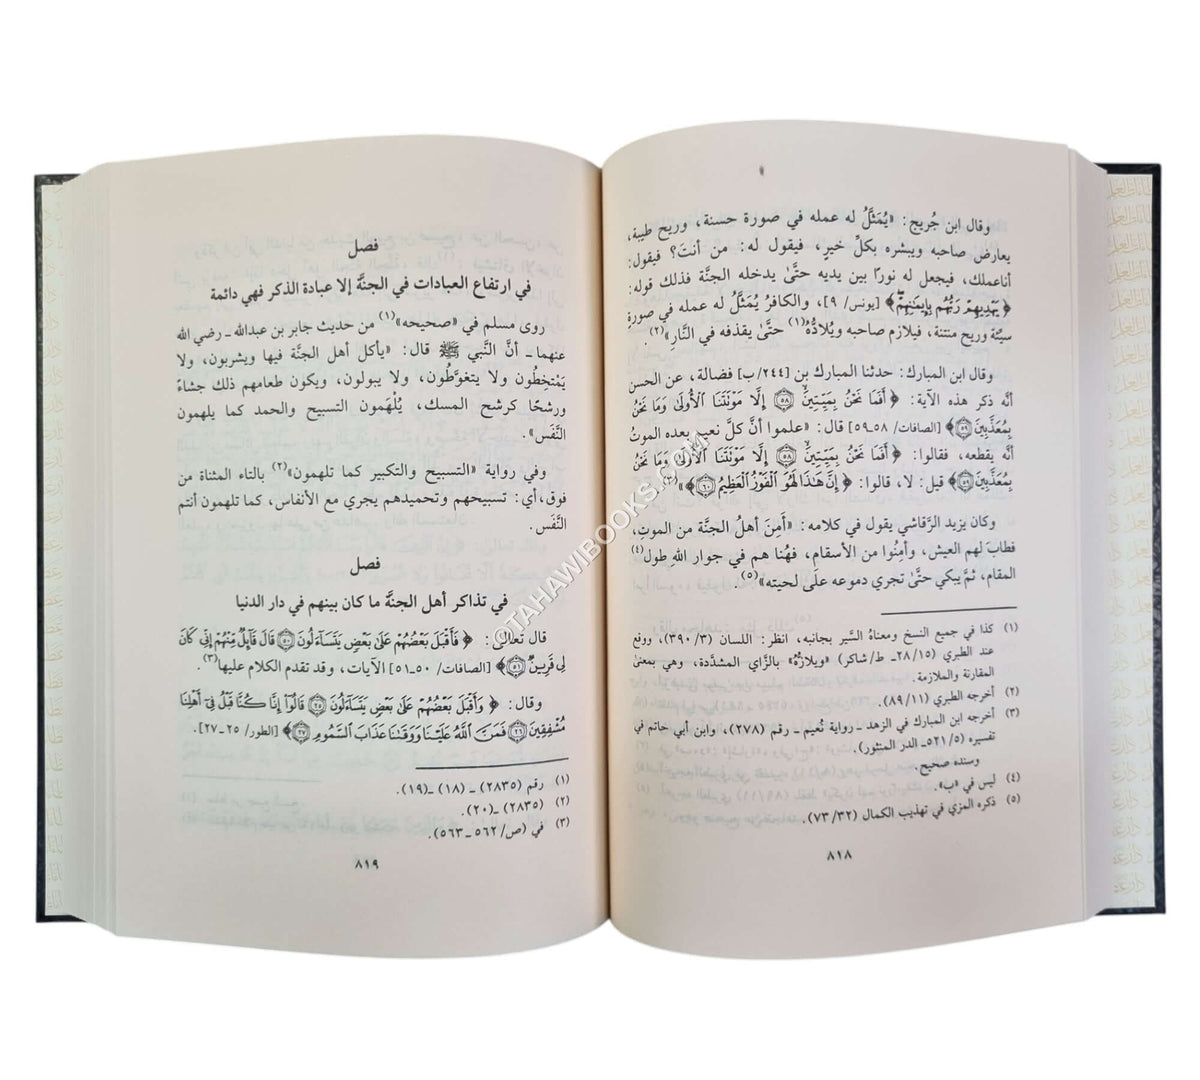 وقال ابن جُريج: «يُمَثَّلُ له عمله في صورة حسنة، وريح طيبة،
يعارض صاحبه ويبشره بكلِّ خيرٍ، فيقول له: من أنتَ؟ فيقول:
أناعملك، فيجعل له نورًا بين يديه حتىٰ يدخله الجنَّة فذلك قوله:
﴿يَهْدِيهِمْ رَبُّهُم بِإِيمَٰنِهِمْ﴾ [يونس/ ٩]، والكافرُ يُمَثَّلُ له عمله في صورةٍ
سيِّة وريح منتنة، فيلازم صاحبه ويُلادُّهُ(١) حتىٰ يقذفه في النَّارِ»(٢).
وقال ابن المبارك: حدثنا المبارك بن [٢٤٤/ب] فضالة، عن الحسن
أنَّه ذكر هذه الآية: ﴿أَفَمَا نَحْنُ بِمَيِّتِينَ ٥٨ إِلَّا مَوْتَتَنَا ٱلْأُولَىٰ وَمَا نَحْنُ
بِمُعَذَّبِينَ ٥٩﴾ [الصافات/ ٥٨ـ٥٩] قال: «علموا أنَّ كلَّ نعيم بعده الموتُ
أنَّه يقطعه، فقالوا: ﴿أَفَمَا نَحْنُ بِمَيِّتِينَ ٥٨ إِلَّا مَوْتَتَنَا ٱلْأُولَىٰ وَمَا نَحْنُ
بِمُعَذَّبِينَ ٥٩﴾ قيل: لا، قالوا: ﴿إِنَّ هَٰذَا لَهُوَ ٱلْفَوْزُ ٱلْعَظِيمُ ٦٠﴾»(٣).
وكان يزيد الرَّقاشي يقول في كلامه: «أَمِنَ أهلُ الجنَّة من الموتِ،
فطابَ لهم العيش، وأمِنُوا من الأسقامِ، فهُنا هم في جوار اللهِ طول(٤)
المقام، ثمَّ يبكي حتَّىٰ تجري دموعه علَى لحيته»(٥).
(١) كذا في جميع النسخ ومعناهُ السَّير بجانبه، انظر: اللسان (٣/ ٣٩٠)، ووقع
عند الطبري (١٥/ ٢٨ـ ط/ شاكر) «ويلازُّه» بالزَّاي المشدَّدة، وهي بمعنىٰ
المقارنة والملازمة.
(٢) أخرجه الطبري (١١/ ٨٩).
(٣) أخرجه ابن المبارك في الزهد ـ رواية نُعيم ـ رقم (٢٧٨)، وابن أبي حاتم في
تفسيره (٥/ ٥٢١ـ الدر المنثور).
وسنده صحيح.
(٤) ليس في «ب».
(٥) ذكره المزي في تهذيب الكمال (٣٢/ ٧٣).
٨١٨
فصل
في ارتفاع العبادات في الجنَّة إلا عبادة الذكر فهي دائمة
روى مسلم في «صحيحه»(١) من حديث جابر بن عبدالله ـ رضي الله
عنهما ـ أنَّ النَّبي ﷺ قال: «يأكل أهل الجنَّة فيها ويشربون، ولا
يَمْتخِطُون ولا يتغوَّطُون، ولا يبولون، ويكون طعامهم ذلك جشاءً
ورشحًا كرشح المسك، يُلْهَمون التسبيح والحمد كما يلهمون
النَّفَس».
وفي رواية «التسبيح والتكبير كما تلهمون»(٢) بالتاء المثناة من
فوق،أي: تسبيحهم وتحميدهم يجري مع الأنفاس، كما تلهمون أنتم
النَّفَس.
فصل
في تذاكر أهل الجنة ما كان بينهم في دار الدنيا
قال تعالىٰ: ﴿فَأَقْبَلَ بَعْضُهُمْ عَلَىٰ بَعْضٍ يَتَسَآءَلُونَ ٥٠ قَالَ قَآئِلٌ مِّنْهُمْ إِنِّي كَانَ
لِي قَرِينٌ ٥١﴾ [الصافات/ ٥٠ـ٥١] الآيات، وقد تقدم الكلام عليها(٣).
وقال: ﴿وَأَقْبَلَ بَعْضُهُمْ عَلَىٰ بَعْضٍ يَتَسَآءَلُونَ ٢٥ قَالُوٓا۟ إِنَّا كُنَّا قَبْلُ فِىٓ أَهْلِنَا
مُشْفِقِينَ ٢٦ فَمَنَّ ٱللَّهُ عَلَيْنَا وَوَقَىٰنَا عَذَابَ ٱلسَّمُومِ ٢٧﴾ [الطور/ ٢٥ـ٢٧].
(١) رقم (٢٨٣٥) ـ (١٨) ـ(١٩).
(٢) (٢٨٣٥) ـ(٢٠).
(٣) في (ص/ ٥٦٢ ـ٥٦٣).
٨١٩
©TAHAWIBOOKS.COM